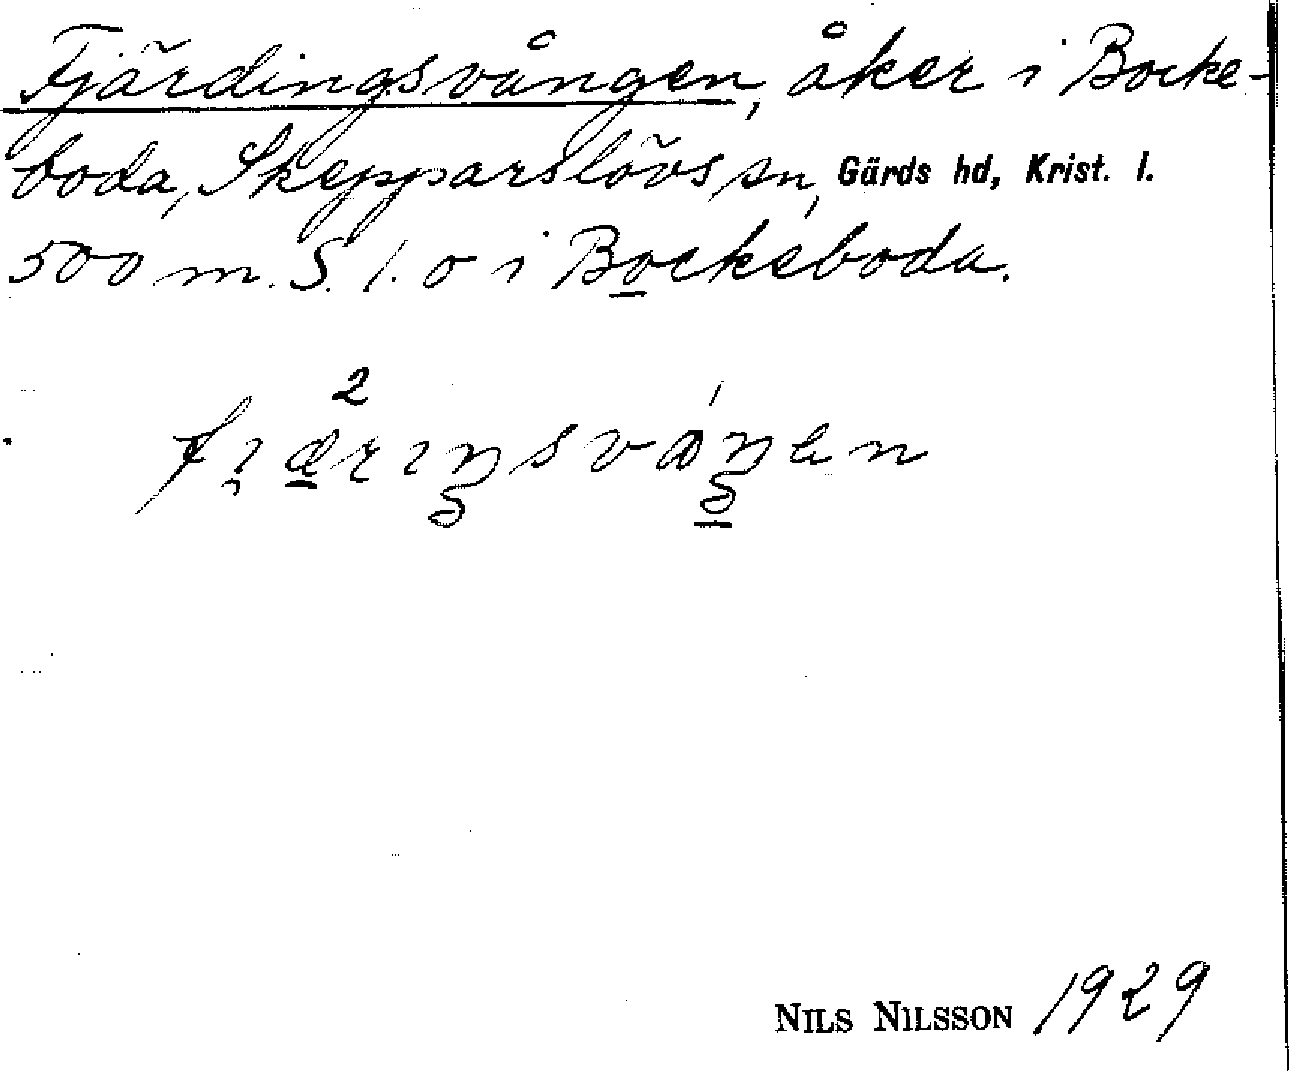 Fjärdingsvången, åker i Bocke-
boda, Skepparslövs sn, Gärds hd, Krist. l.
500 m. S. l. o i Bockeboda.
2
fi̯ærıŋsvåŋen
NILS NILSSON 1929